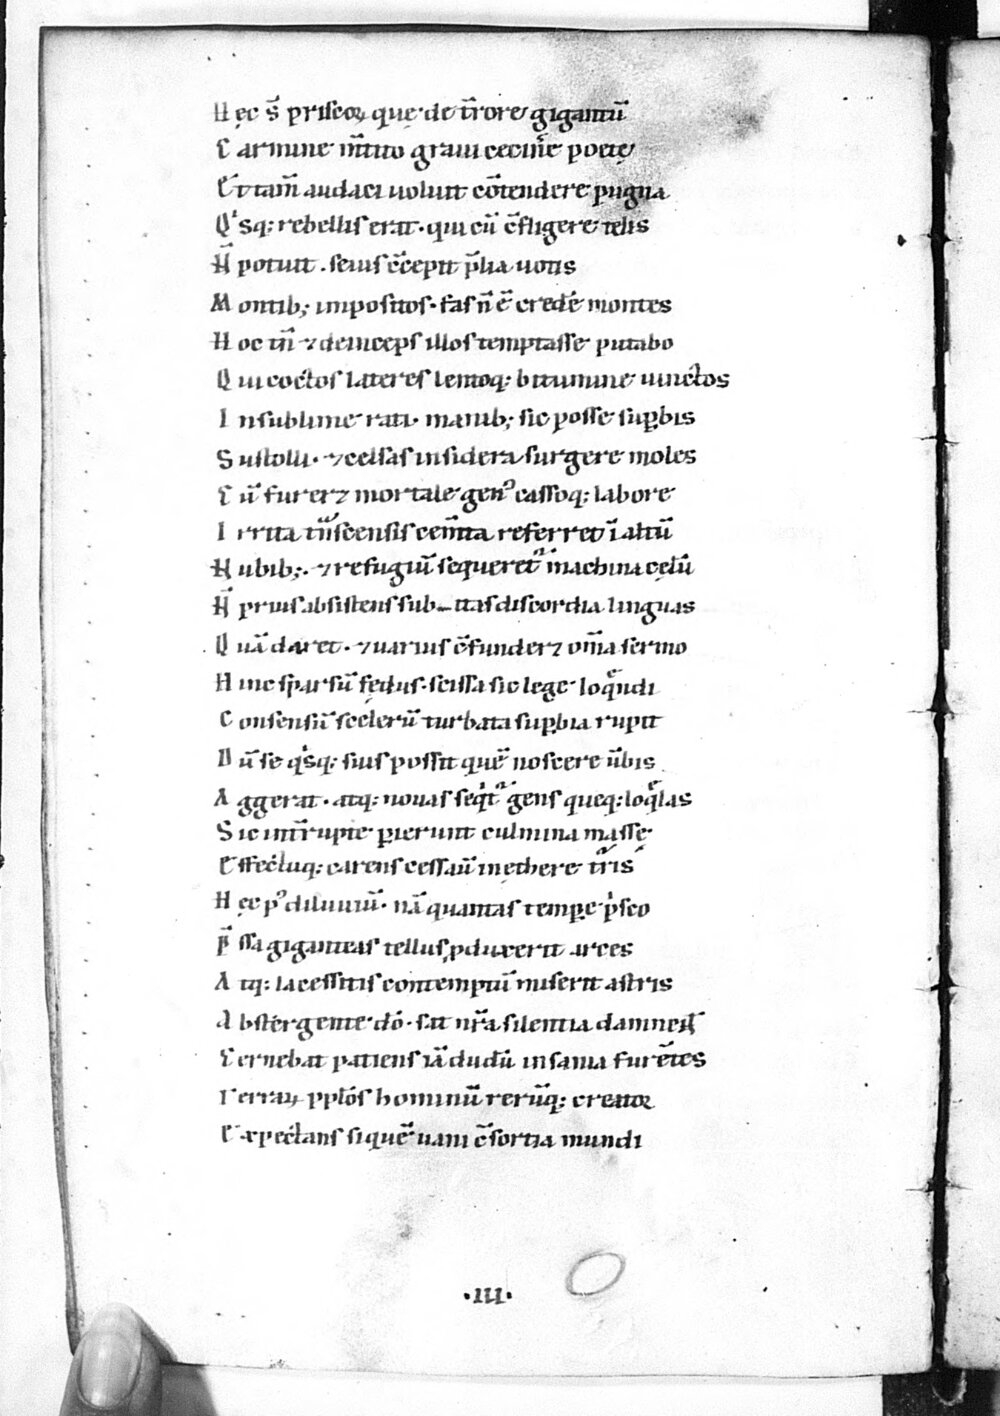 H ęc s̄ priscoꝝ quę de t̄rore gigantū
C armine m̄tito graui cecin̄e poetę
E t tam̄ audaci uoluit cōtendere pugna
Q 'sq; rebellis erat · qui cū c̄fligere telis
N̄ potuit . seuis c̄cepit p̄lia uotis
M ontib; impositos · fas n̄ ē cred̄e montes
H oc tn̄ ⁊ deinceps illos temptasse putabo
Q ui coctos lateres lentoq; bitumine uinctos
I n sublime rati · manib; sic posse suꝑbis
S ustolli · ⁊ celsas in sidera surgere moles
C ū fureret mortale genꝰ cassoq; labore
I rrita tn̄scensis cem̄ta referret ī altū
N ubib; · ⁊ refugiū sequeret᷑ machina cęlū
N̄ prius absistens sub_itas discordia linguas
Q uā daret · ⁊ uarius c̄funderet om̄ia sermo
H inc sparsū fędus · scissa sic lege loq̄ndi
C onsensū scelerū turbata suꝑbia rupit
D ū se q'sq; suis possit quē noscere ūbis
A ggerat · atq; nouas seq't᷑ gens queq; loq̄las
S ic int̄rupte ꝑierunt culmina massę
E ffectuq; carens cessauit in ęthere t᷑ris
H ęc pꝰ diluuiū · nā quantas tempe p'sco
I p̄ssa giganteas tellus ꝓduxerit arces
A tq; lacessitis contemptū miserit astris
A bst̄ergente dō · sat nr̄a silentia damnent
C ernebat patiens iā dudū insania furētes
T erraꝝ pplōs hominū rerūq; creator
E xpectans si quē uani c̄sortia mundi
· III ·